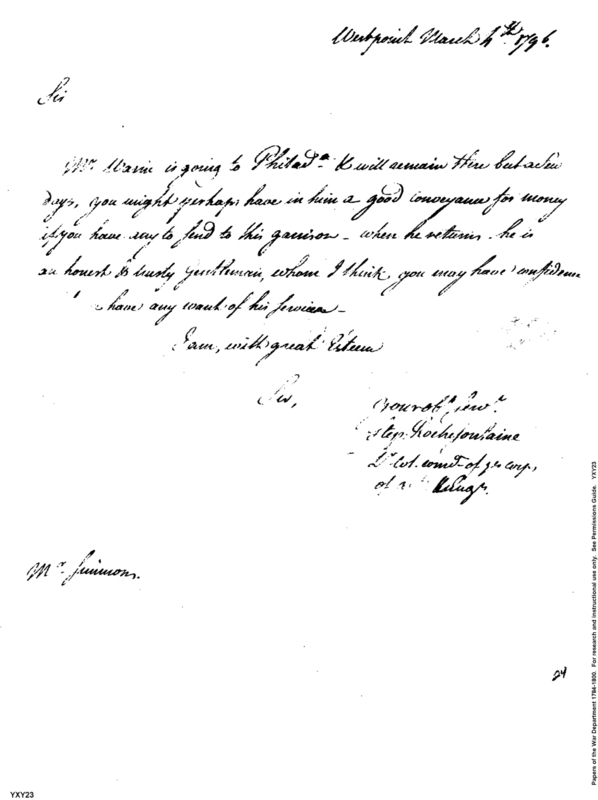 Westpoint March 4th 1796.
Sir
Mr. is going to Philada. & will remain there but a few
days, you might perhaps have in him a good conveyance for money
if you have any to send to this garrison - when he returns. he is
an honest & trusty gentleman, whom I think, you may have confidence
have any want of his services -
I am, with great Esteem
Sir,
Your obt. servt.
Step. Rochefontaine
Lt. Col. comdt. of ye corps
of
Mr. Simmons.
24
YXY23
Papers of the War Department 1784-1800. For research and instructional use only. See Permissions Guide. YXY23